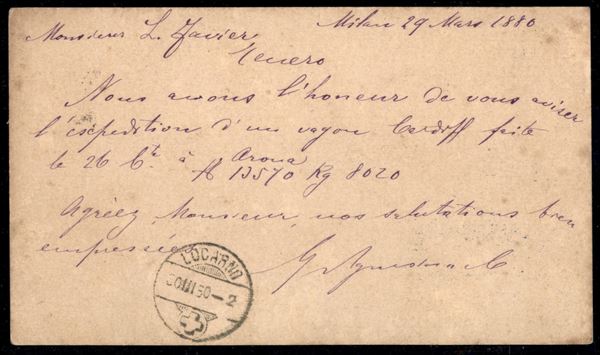 Milan 29 Mars 1880
Monsieur L. Javier
Tenero
Nous avons l'honneur de vous aviser
l'expédition d'un vagon Cardiff faite
le 26 Ct. à Arona
№ 13570 Kg 8020
Agréez, Monsieur, nos salutations bien
empressées
LOCARNO